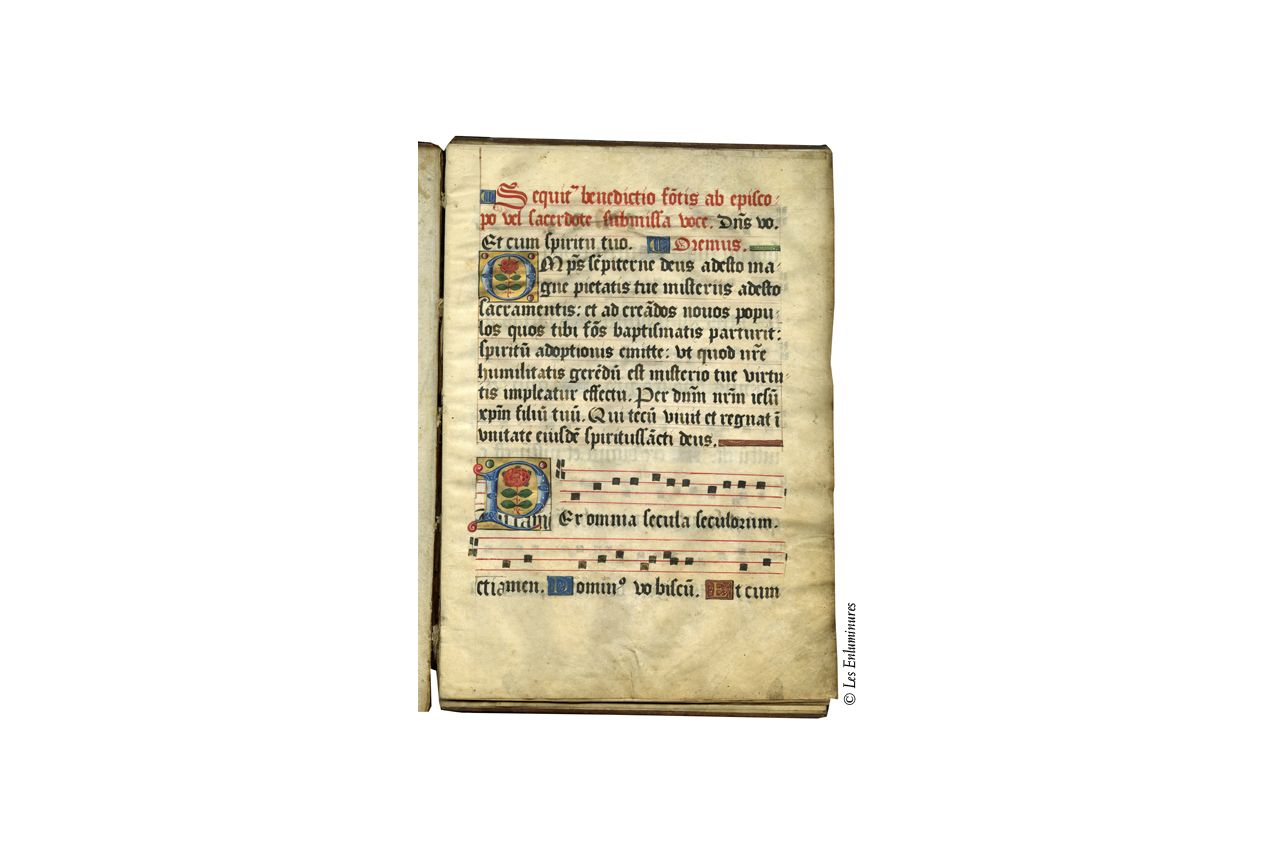 Sequit᷑ benedictio fōtis ab episco-
po vel sacerdote submissa voce. Dn̄s vo.
Et cum spiritu tuo. Oremus.
OMp̄s sēpiterne deus adesto ma-
gne pietatis tue misteriis adesto
sacramentis: et ad creādos nouos popu-
los quos tibi fōs baptismatis parturit:
spiritū adoptionis emitte: vt quod nr̄e
humilitatis gerēdū est misterio tue virtu-
tis impleatur effectu. Per dn̄m nr̄m iesū
xp̄m filiū tuū. Qui tecū viuit et regnat ī
vnitate eiusdē spiritussācti deus.
PEr omnia secula seculorum.
amen. Dominꝰ vobiscū. Et cum
© Les Enluminures